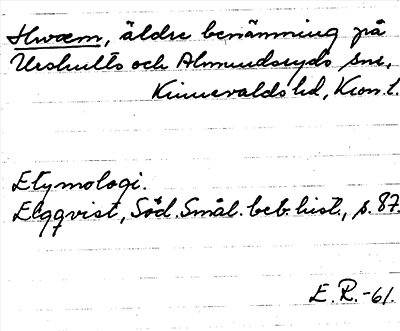 Hwæm, äldre benämning på
Urshults och Almundsryds snr,
Kinnevalds hd, Kron. l.
Etymologi.
Elqqvist, Söd. Smål. beb. hist., s. 87.
E. R. -61.